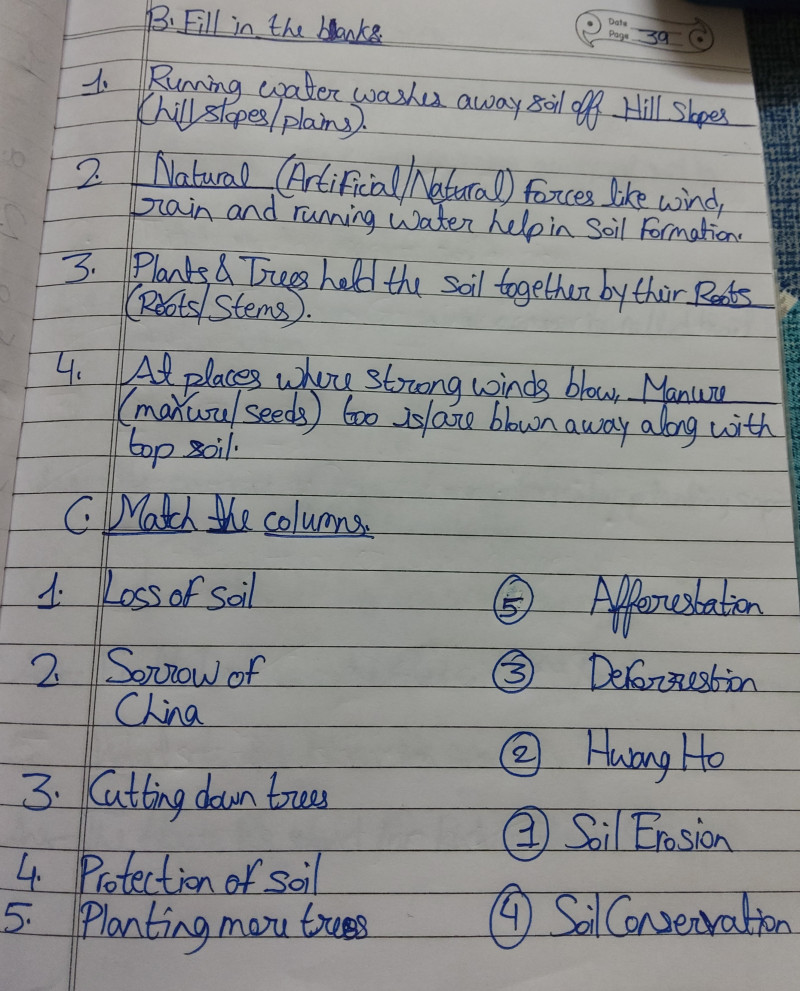 B. Fill in the blanks.
Date
Page 39
1. Running water washes away soil off Hill Slopes
(hill slopes/plains).
2. Natural (Artificial/Natural) forces like wind,
rain and running water help in soil formation.
3. Plants & Trees hold the soil together by their Roots
(Roots/Stems).
4. At places where strong winds blow, Manure
(manure/seeds) too is/are blown away along with
top soil.
C. Match the columns.
1. Loss of soil ⑤ Afforestation
2. Sorrow of ③ Deforrestion
China
② Hwang Ho
3. Cutting down trees
① Soil Erosion
4. Protection of soil
5. Planting more trees ④ Soil Conservation